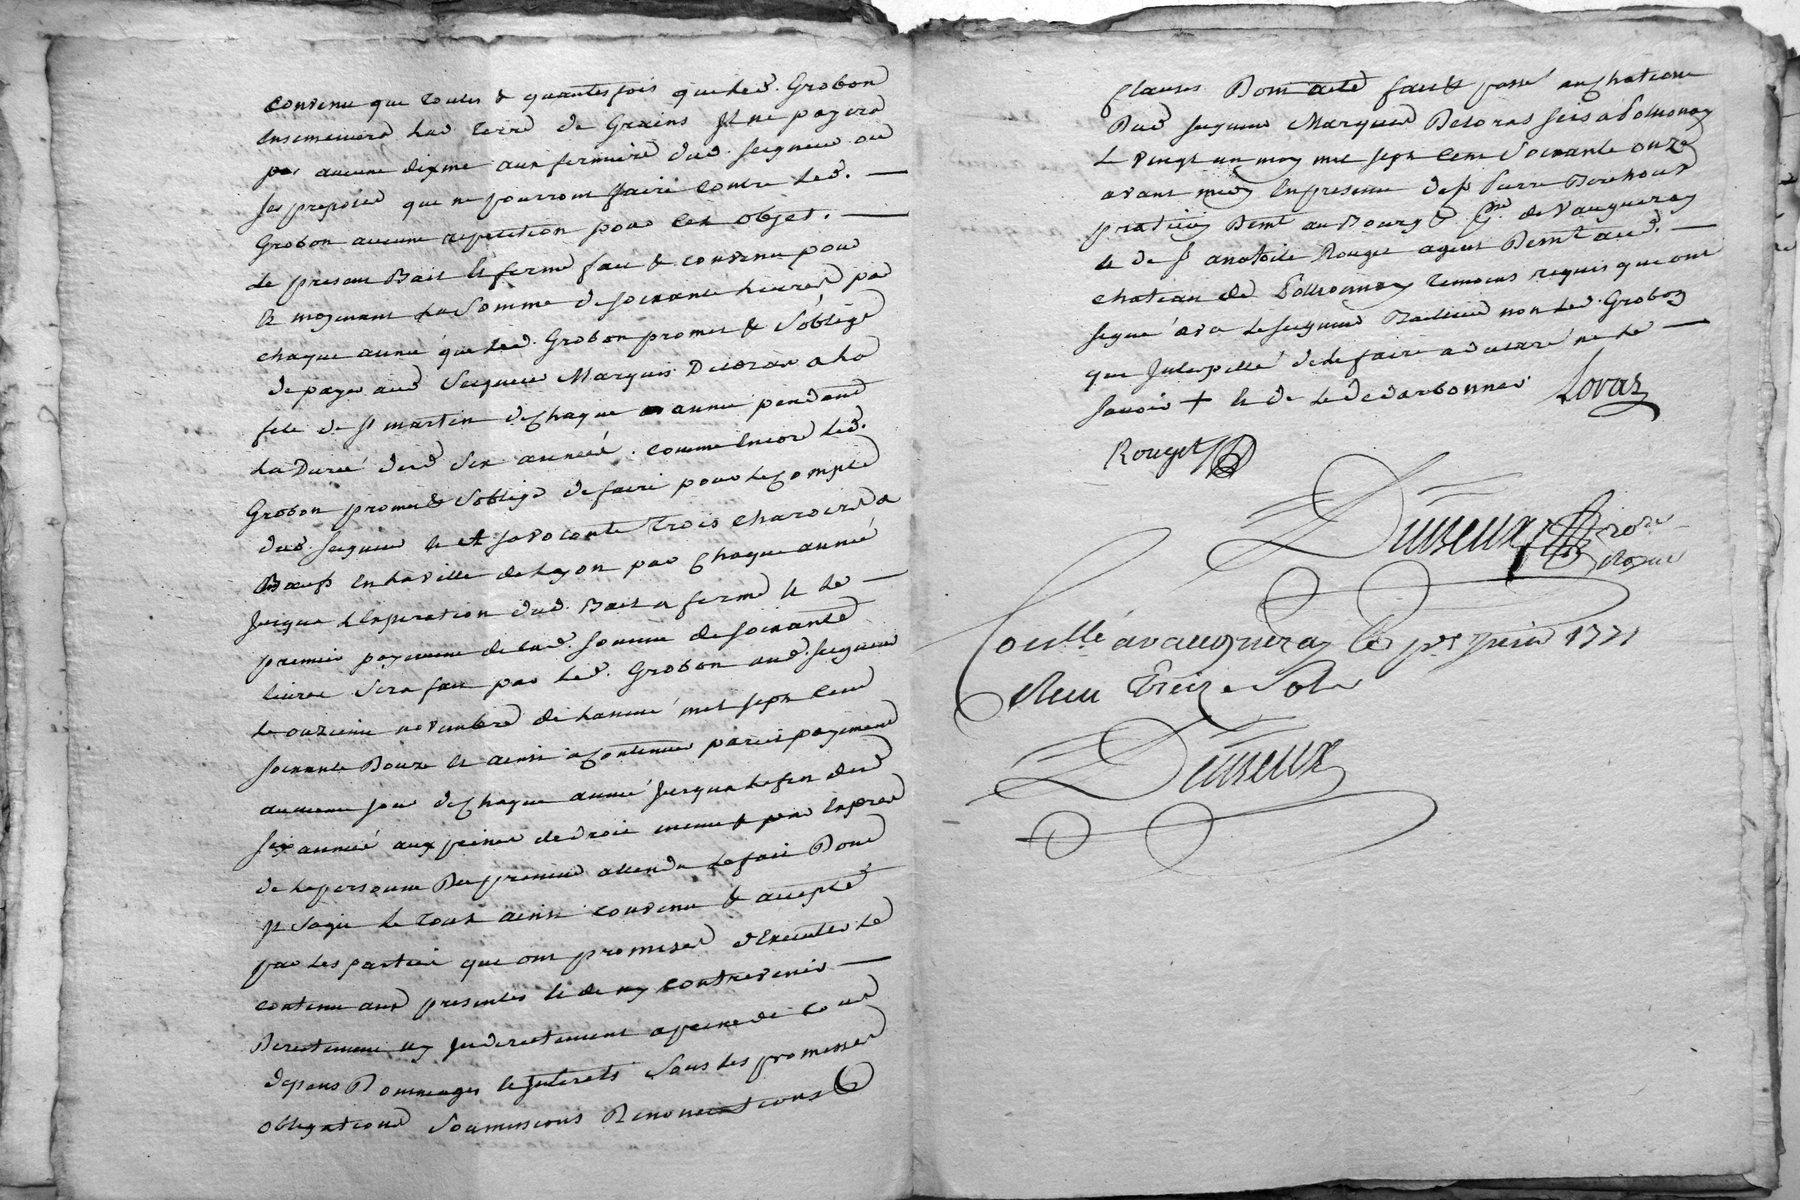 convenu que toutes & quantes fois que led. Grobon
Ensemencera lad terre de Grains Jl ne payera
pas aucune dixme aux fermiers dud. seigneur ou
ses preposes que ne pourront faire contre led. —
Grobon aucune repetition pour cet objet. —
le present Bail a ferme fait & convenu pour
& moyenant la somme de soixante livres par
chaque année que led. Grobon promet & s'oblige
de payer aud Seigneur Marquis Deloras a la
fete de st martin de chaque année pendant
la Dureé desd six années. comme Encore led.
Grobon promet & soblige de faire pour le Compte
dud. seigneur et a sa voconté trois charois a
Boeufs En la ville de Lyon par chaque année
jusqua l'Expiration dud. Bail a ferme et le —
premier payement de lad. somme de soixante
livres sera fait par led. Grobon aud. seigneur
le onzieme novembre de l'anneé mil sept cent
soixante Douze et ainsi a continuer pareil payement
au meme jour de chaque année jusqua la fin desd
six année aux peines de droit meme par Emprise
de la personne Du preneur attendu le fait Dont
Jl sagit le tout ainsi convenu & accepté
par les parties que ont promises d'Executer le
contenu aux presentes et de ny contrevenir —
Directement ny Jndirectement a peine de tous
depens Dommages et Jnterets sous les promesses
obligations soumissions Renonciations &
Clauses Dont acte fait & passé au chateau
Dud seigneur Marquis Deloras sis a Pollionay
le vingt un may mil sept cent soixante onze
avant midy En presence de sr Pierre
praticien Demt au Bourg & de Vaugneray
et de sr anatoile Rouget agent Demt aud. —
chateau de Pollionnay temoins requis que ont
signé avec le seigneur Bailleur non led. Grobon
que Jnterpellé de le faire a declaré ne le —
savoir + et de led Loras
Rouget
Duiseux
Royal
Conllé a vaugneray le 1er juin 1771
Reçu treize sols
Duiseux